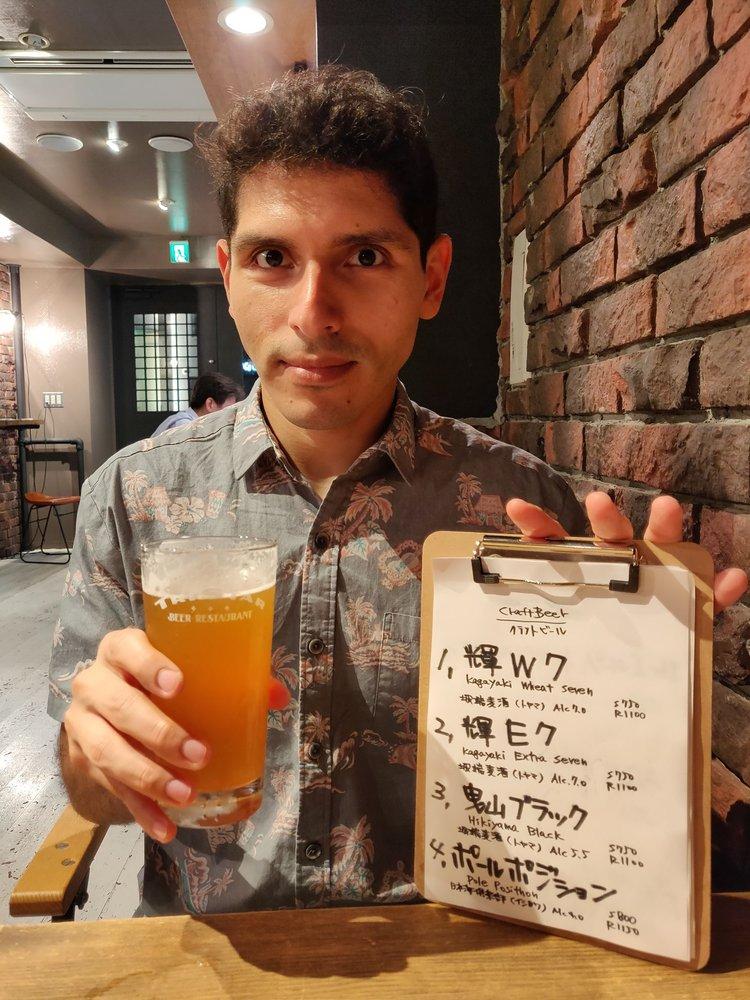 BEER RESTAURANT
CraftBeer
クラフトビール
1, 輝W7
Kagayaki Wheat Seven
城端麦酒(トヤマ) Alc7.0 S750
R1100
2, 輝E7
Kagayaki Extra Seven
城端麦酒(トヤマ) Alc.7.0 S750
R1100
3, 曳山ブラック
Hikiyama Black
城端麦酒(トヤマ) Alc5.5 S750
R1100
4, ポールポジション
Pole Position
日本海倶楽部(イシカワ) S800
R1150